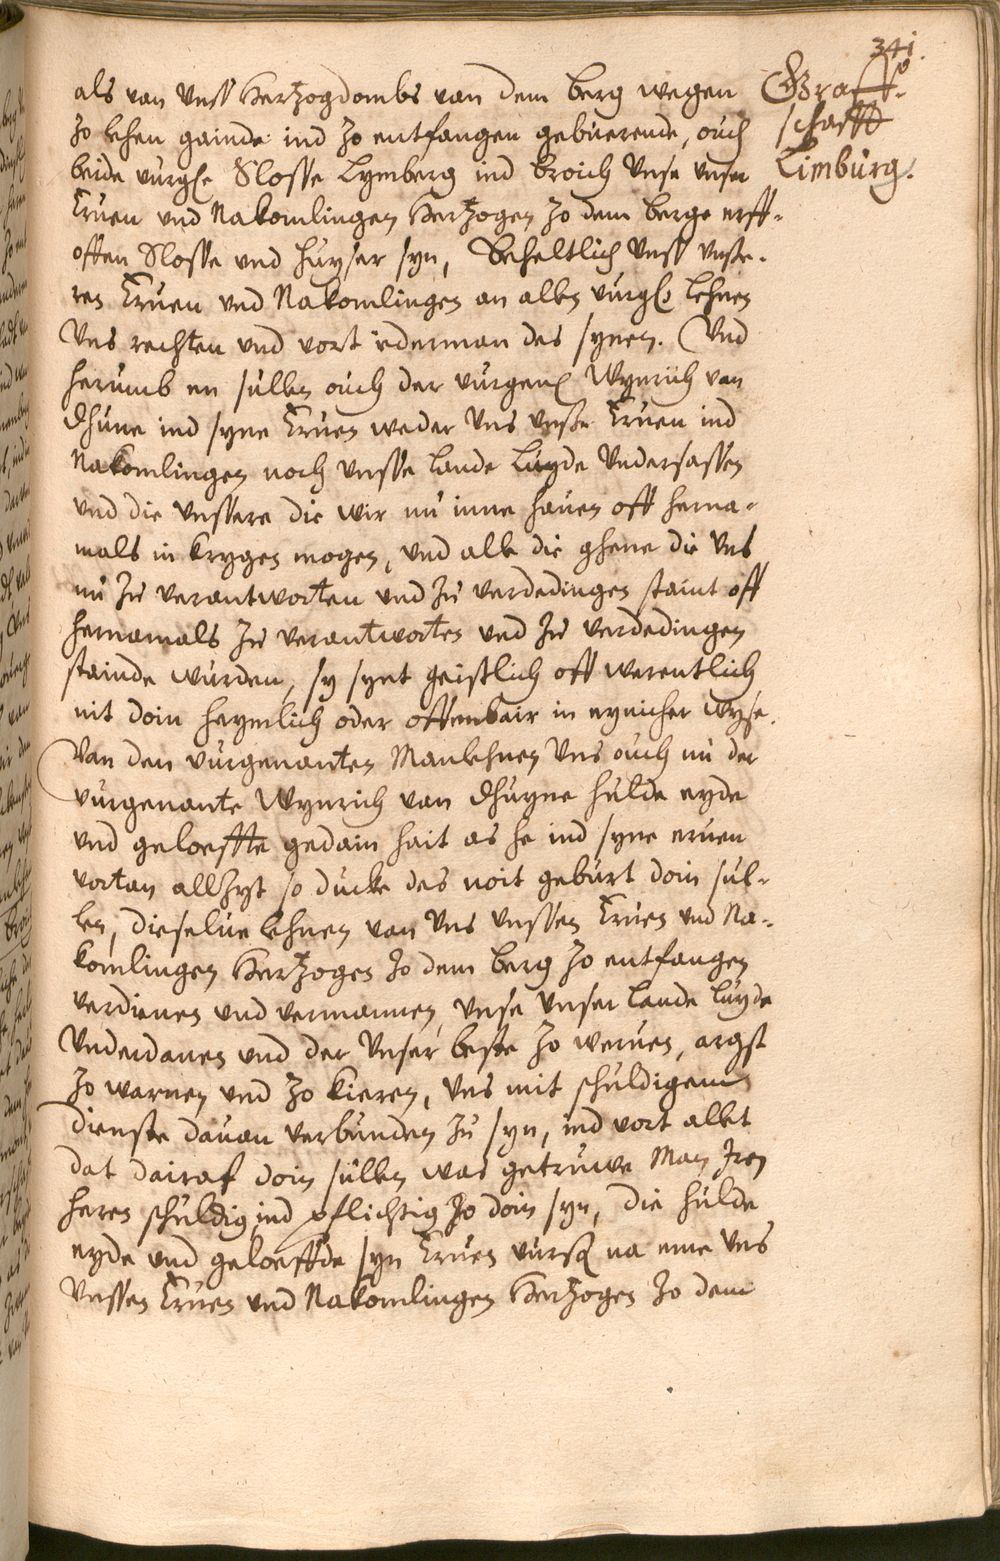 341.
Graff-
schafft
Limburg.
als van Unss Hertzogdombs van dem Berg wegen
zo lehen gainde ind zo entfangen gebuerende, ouch
beide vurgs Slosse Lymberg ind Broich Unse Unser
Eruen und Nakomlingen Hertzogen zo dem Berge erff-
offen Slosse und huyser syn, Beheltlich Unss Unße-
ren Eruen und Nakomlingen an allen vurgs Lehnen
Uns rechten und vort iederman des synen. Und
herumb en sullen ouch der vurgen Wynrich van
Dhune ind syne Eruen weder Uns Unße Eruen ind
Nakomlingen noch Unsse Lande Luyde Undersassen
und die Unssere die wir nu inne hauen off herna-
mals in krygen mogen, und alle die ghene die Uns
nu zu verantworten und zu verdedingen staint off
hernamals zu verantworten und zu verdedingen
stainde wurden, sy synt geistlich off werentlich
nit doin heymlich oder offenbair in eynicher wyse.
Van den vurgenanten Manlehnen Uns ouch nu der
vurgenante Wynrich van Dhuyne hulde eyde
und geloeffte gedain hait as he ind syne eruen
vortan allzyt so ducke des noit geburt doin sul-
len, dieselue Lehnen van Uns Unssen Eruen und Na-
komlingen Hertzogen zo dem Berg zo entfangen
verdienen und vermannen, Unse Unser Lande Luyde
Underdanen und der Unser beste zo weruen, argst
zo warnen und zo kieren, Uns mit schuldigem
dienste dauan verbunden zu syn, ind vort allet
dat dairaf doin sullen was getruwe Man Iren
heren schuldig ind pflichtig zo doin syn, die hulde
eyde und geloeffde syn Eruen vursz na eme Uns
Unssen Eruen und Nakomlingen Hertzogen zo dem